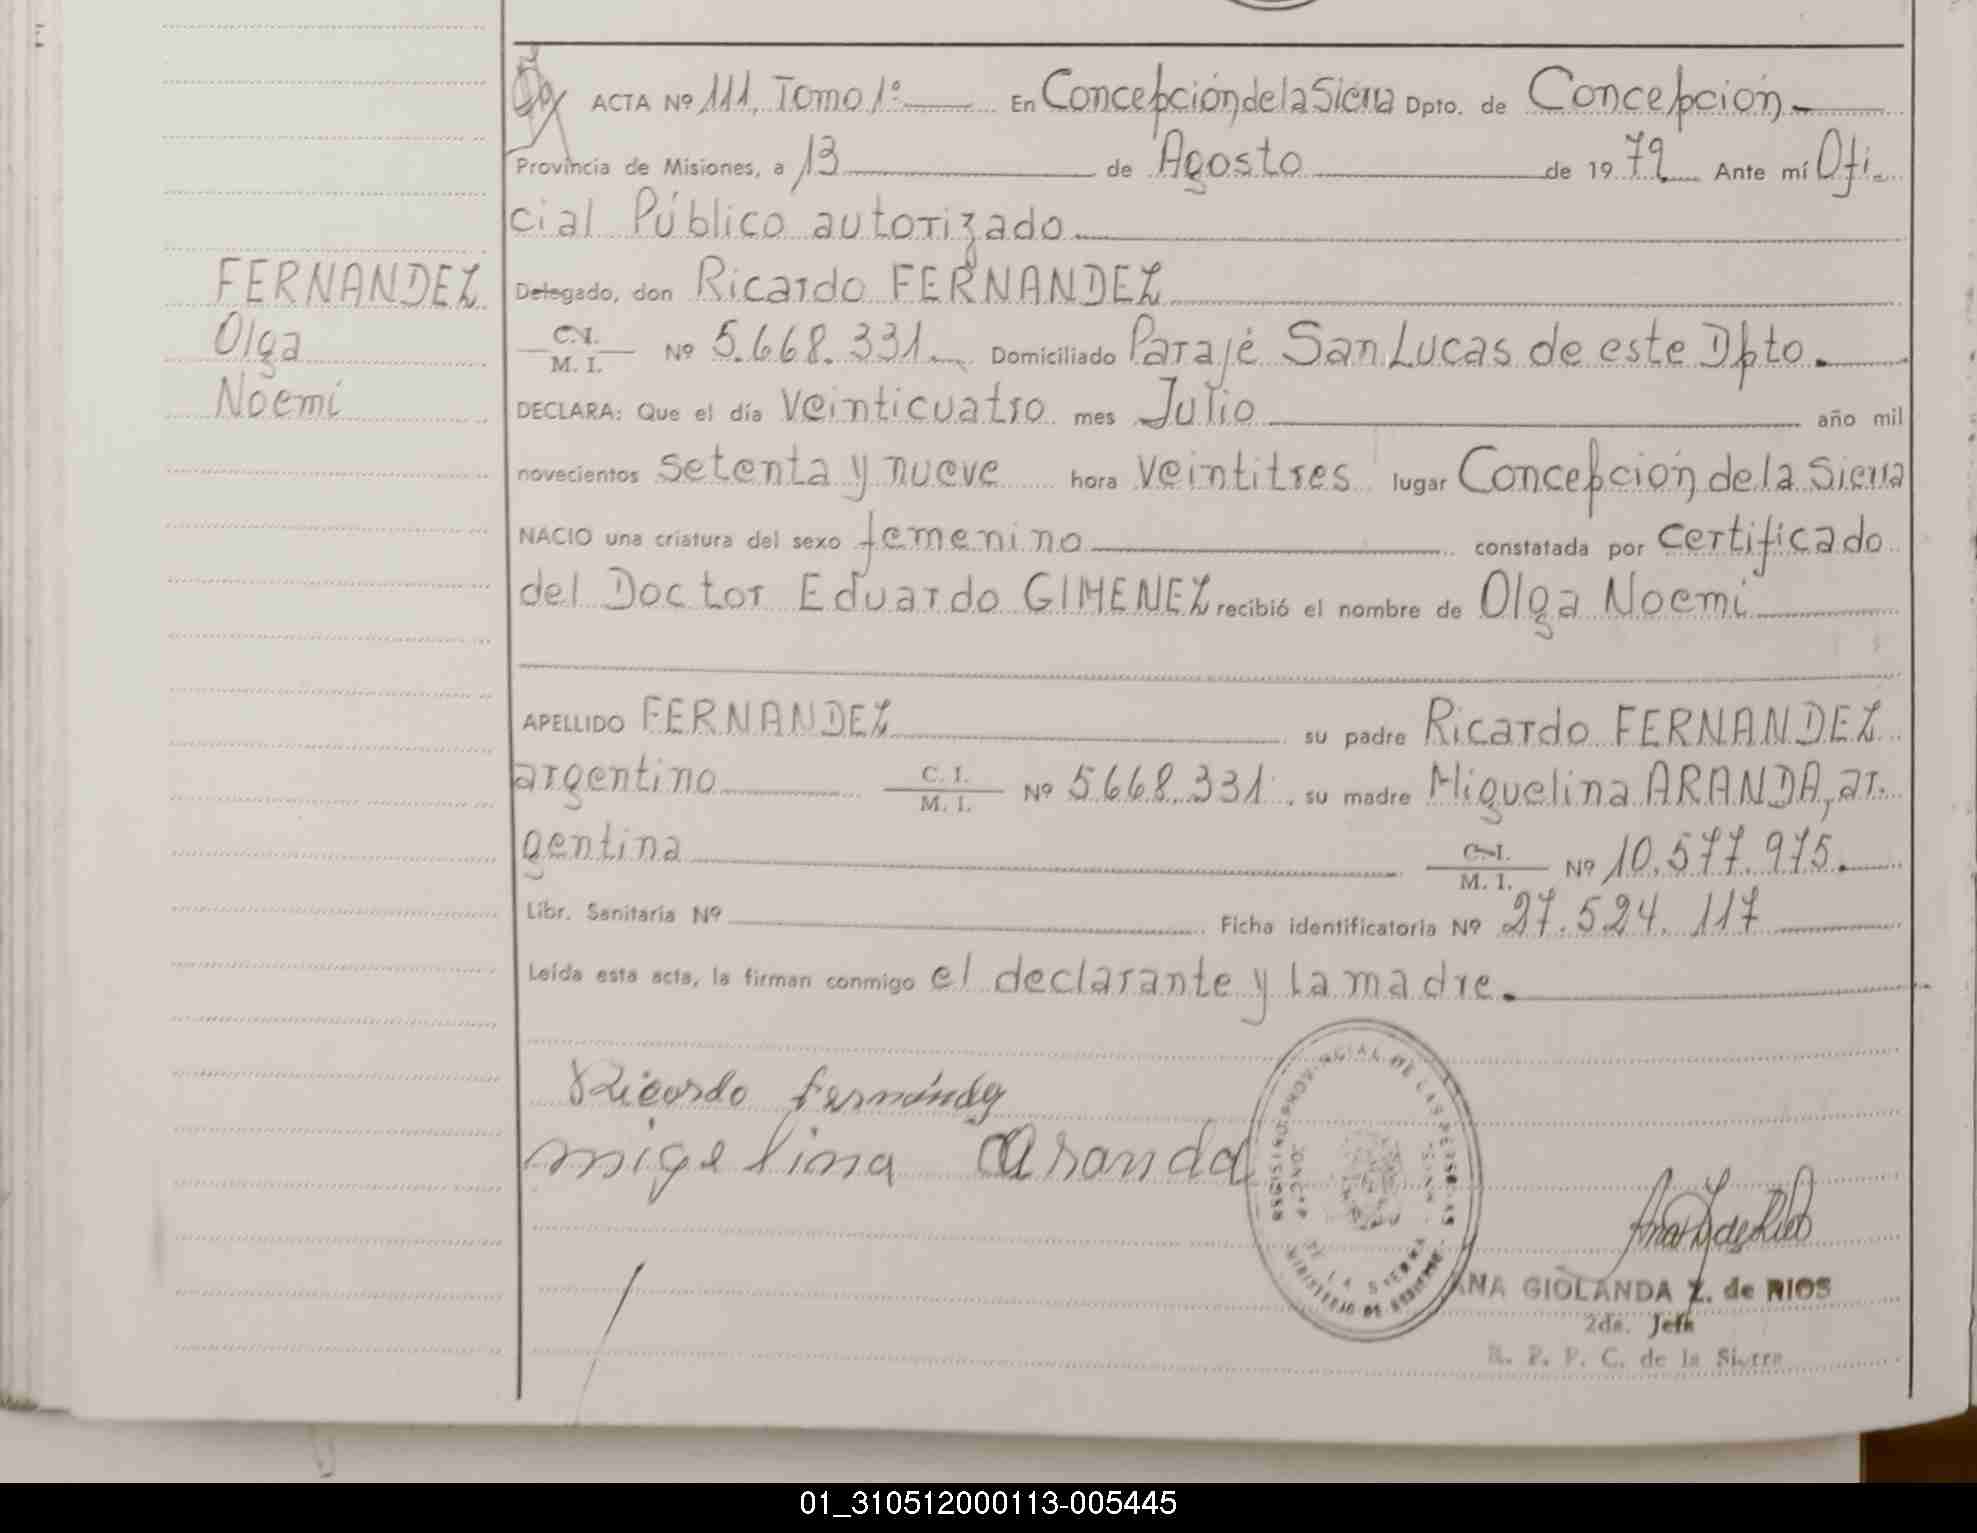 ACTA Nº 111, Tomo 1º En Concepción de la Sierra Dpto. de Concepción.
Provincia de Misiones, a 13 de Agosto de 1979 Ante mí Ofi-
cial Público autorizado
Delegado, don Ricardo FERNANDEZ
C. I. / M. I. Nº 5.668.331 Domiciliado Paraje San Lucas de este Dpto.
DECLARA: Que el día veinticuatro mes Julio año mil
novecientos setenta y nueve hora veintitres lugar Concepción de la Sierra
NACIO una criatura del sexo femenino constatada por certificado
del Doctor Eduardo GIMENEZ recibió el nombre de Olga Noemí
APELLIDO FERNANDEZ su padre Ricardo FERNANDEZ
argentino C. I. / M. I. Nº 5.668.331. su madre Miguelina ARANDA, ar-
gentina C. I. / M. I. Nº 10.577.975.
Libr. Sanitaria Nº Ficha identificatoria Nº 27.524.117
Leída esta acta, la firman conmigo el declarante y la madre.
FERNANDEZ
Olga
Noemí
Ricardo Fernández
migelina Aranda
DE LA SIERRA
ANA GIOLANDA Z. de RIOS
2da. Jefe
R. P. P. C. de la Sierra
01_310512000113-005445